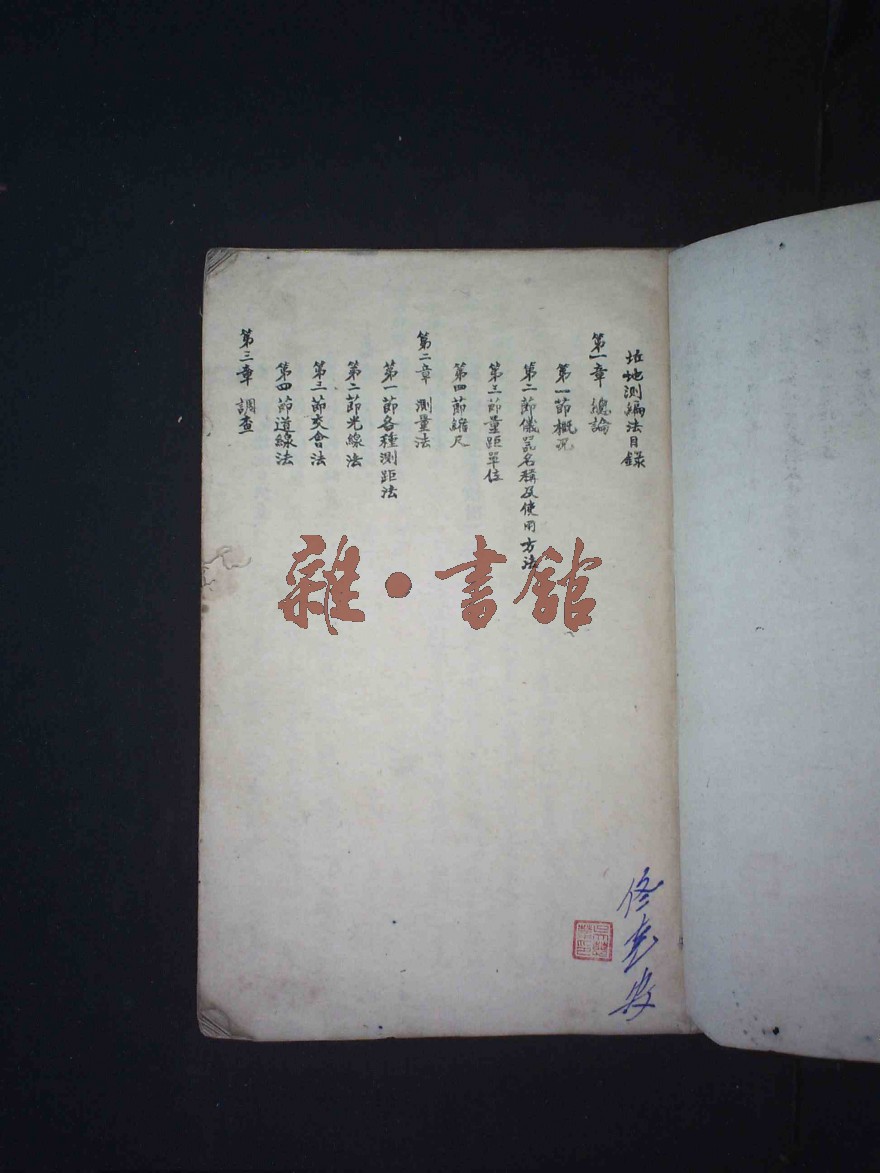 坵地測編法目錄
第一章 總論
第一節概況
第二節儀器名稱及使用方法
第三節量距單位
第四節縮尺
第二章 測量法
第一節各種測距法
第二節光線法
第三節交會法
第四節道線法
第三章 調查
雜·書館